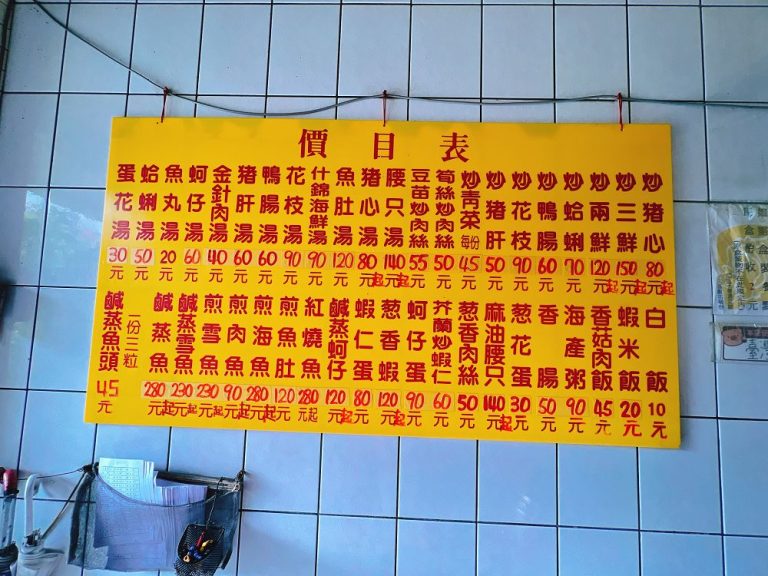 價目表
炒豬心 80元起
炒三鮮 150元起
炒兩鮮 120元起
炒蛤蜊 70元
炒鴨腸 60元
炒花枝 90元
炒豬肝 50元
炒青菜 每份 45元
筍絲炒肉絲 50元
豆苗炒肉絲 55元
腰只湯 140元起
豬心湯 80元起
魚肚湯 120元
什錦海鮮湯 90元
花枝湯 90元
鴨腸湯 60元
豬肝湯 60元
金針肉湯 40元
蚵仔湯 60元
魚丸湯 20元
蛤蜊湯 50元
蛋花湯 30元
白飯 10元
蝦米飯 20元
香菇肉飯 45元
海產粥 90元
香腸 50元
葱花蛋 30元
麻油腰只 140元起
葱香肉絲 50元
芥蘭炒蝦仁 60元
蚵仔蛋 90元
葱香蝦 120元起
蝦仁蛋 80元
鹹蒸蚵仔 120元起
紅燒魚 280元起
煎魚肚 120元
煎海魚 280元起
煎肉魚 90元
煎雪魚 230元起
鹹蒸雪魚 230元起
鹹蒸魚 280元起
鹹蒸魚頭 一份三粒 45元